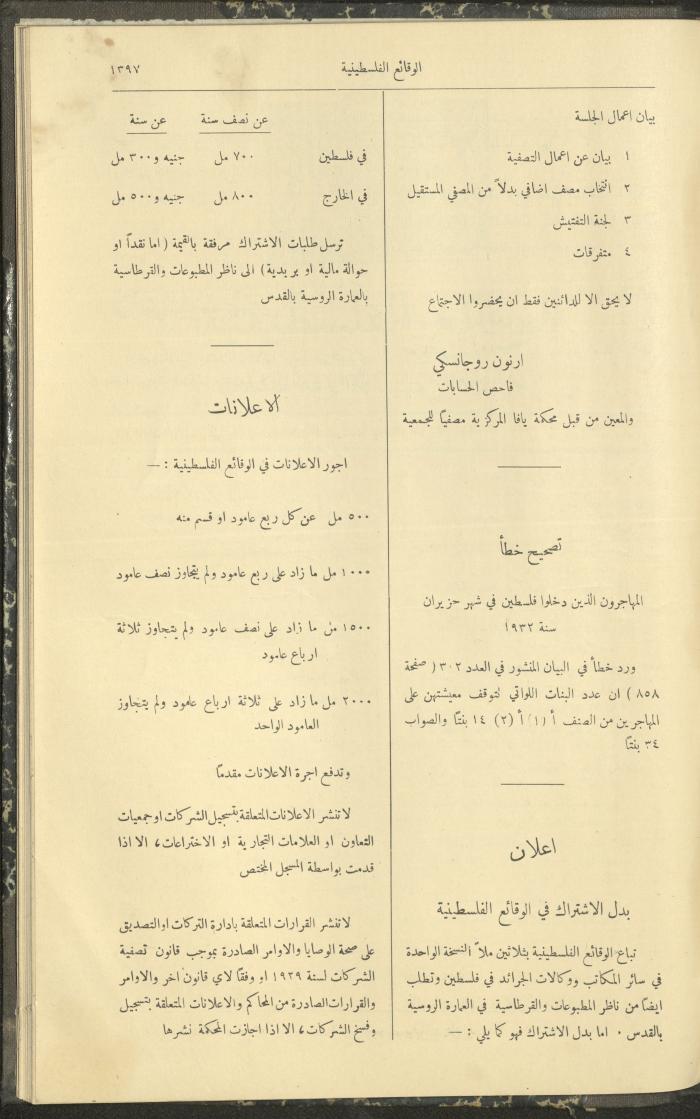 الوقائع الفلسطينية
١٣٩٧
بيان اعمال الجلسة
١ بيان عن اعمال التصفية
٢ انتخاب مصف اضافي بدلاً من المصفي المستقيل
٣ لجنة التفتيش
٤ متفرقات
لا يحق الا للدائنين فقط ان يحضروا الاجتماع
ارنون روجانسكي
فاحص الحسابات
والمعين من قبل محكمة يافا المركزية مصفياً للجمعية
تصحيح خطأ
المهاجرون الذين دخلوا فلسطين في شهر حزيران
سنة ١٩٣٢
ورد خطأ في البيان المنشور في العدد ٣٠٢ ( صفحة
٨٥٨ ) ان عدد البنات اللواتي لتوقف معيشتهن على
المهاجرين من الصنف أ (١) أ (٢) ١٤ بنتاً والصواب
٣٤ بنتاً
اعلان
بدل الاشتراك في الوقائع الفلسطينية
تباع الوقائع الفلسطينية بثلاثين ملاً النسخة الواحدة
في سائر المكاتب ووكالات الجرائد في فلسطين وتطلب
ايضاً من ناظر المطبوعات والقرطاسية في العمارة الروسية
بالقدس . اما بدل الاشتراك فهو كما يلي : —
عن نصف سنة عن سنة
في فلسطين ٧٠٠ مل جنيه و٣٠٠ مل
في الخارج ٨٠٠ مل جنيه و٥٠٠ مل
ترسل طلبات الاشتراك مرفقة بالقيمة ( اما نقداً او
حوالة مالية او بريدية ) الى ناظر المطبوعات والقرطاسية
بالعمارة الروسية بالقدس
الاعلانات
اجور الاعلانات في الوقائع الفلسطينية : —
٥٠٠ مل عن كل ربع عامود او قسم منه
١٠٠٠ مل ما زاد على ربع عامود ولم يتجاوز نصف عامود
١٥٠٠ مل ما زاد على نصف عامود ولم يتجاوز ثلاثة
ارباع عامود
٢٠٠٠ مل ما زاد على ثلاثة ارباع عامود ولم يتجاوز
العامود الواحد
وتدفع اجرة الاعلانات مقدماً
لا تنشر الاعلانات المتعلقة بتسجيل الشركات او جمعيات
التعاون او العلامات التجارية او الاختراعات، الا اذا
قدمت بواسطة المسجل المختص
لا تنشر القرارات المتعلقة بادارة التركات او التصديق
على صحة الوصايا والاوامر الصادرة بموجب قانون تصفية
الشركات لسنة ١٩٢٩ او وفقاً لاي قانون اخر والاوامر
والقرارات الصادرة من المحاكم والاعلانات المتعلقة بتسجيل
وفسخ الشركات، الا اذا اجازت المحكمة نشرها